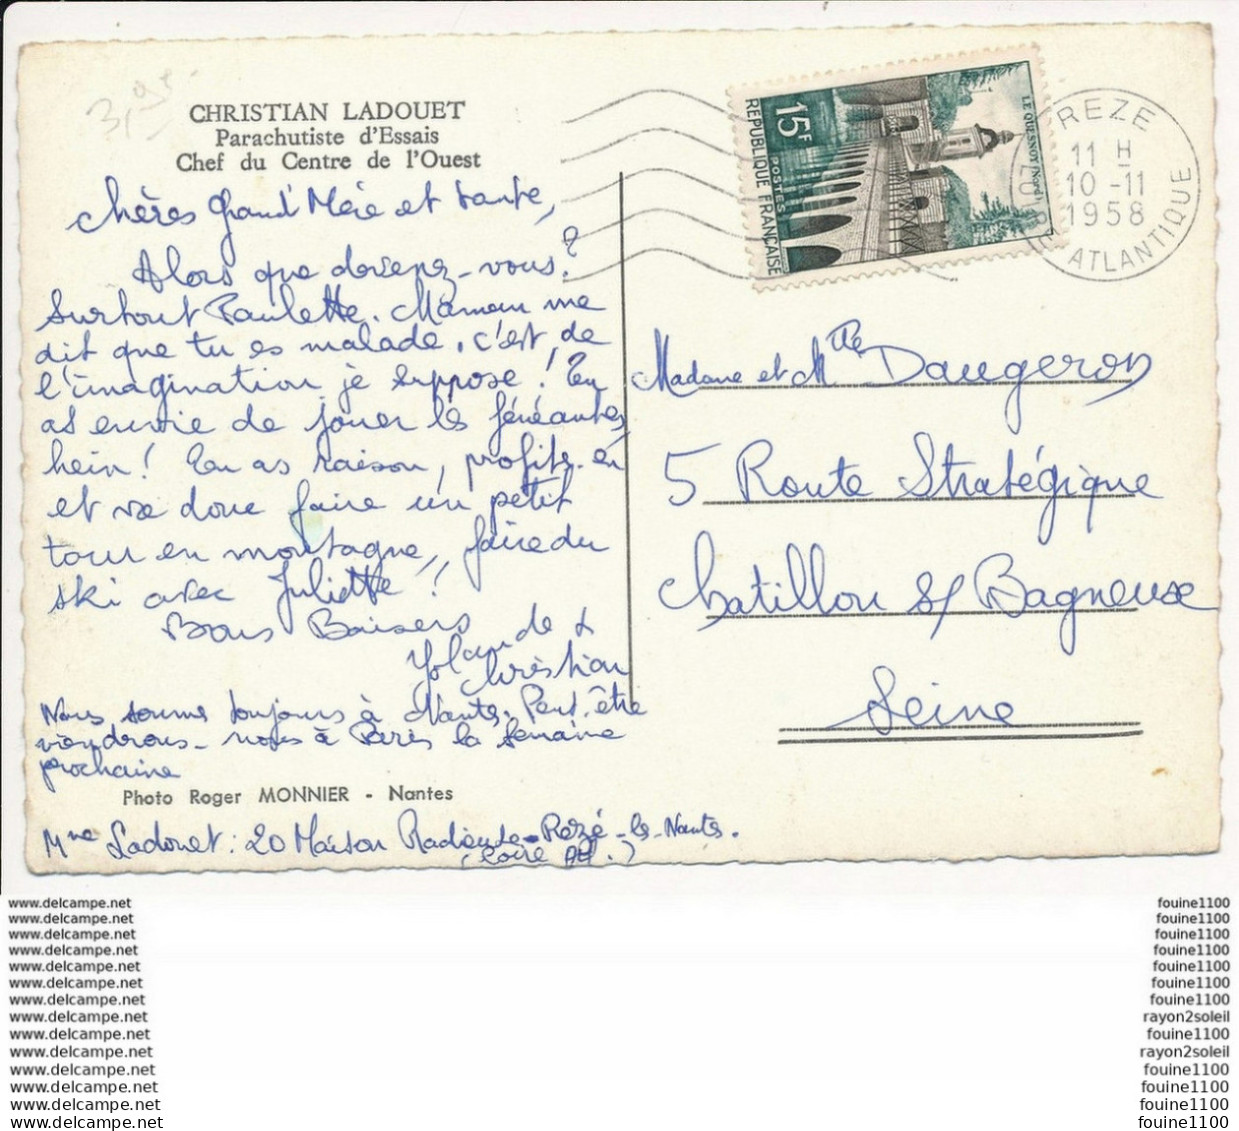 3,9
CHRISTIAN LADOUET
Parachutiste d'Essais
Chef du Centre de l'Ouest
Chères Grand'Mère et tante,
Alors que devenez-vous?
Surtout Paulette. Maman me
dit que tu es malade, c'est de
l'imagination je suppose! Tu
as envie de jouer les fénéantes
hein! Tu as raison, profite-en
et va donc faire un petit
tour en montagne, faire du
ski avec Juliette!
Bons Baisers
Yolande &
Christian
Nous somme toujours à Nantes. Peut-être
viendrons-nous à Paris la semaine
prochaine
Photo Roger MONNIER - Nantes
Mme Ladouet: 20 Maison Radieuse-Rezé-les-Nantes.
(Loire Atl.)
15F
POSTES
REPUBLIQUE FRANÇAISE
LE QUESNOY (Nord)
REZE
11 H
10 -11
1958
ATLANTIQUE
Madame et Mlle Daugeron
5 Route Stratégique
Chatillon s/ Bagneux
Seine
www.delcampe.net
www.delcampe.net
www.delcampe.net
www.delcampe.net
www.delcampe.net
www.delcampe.net
www.delcampe.net
www.delcampe.net
www.delcampe.net
www.delcampe.net
www.delcampe.net
www.delcampe.net
www.delcampe.net
www.delcampe.net
fouine1100
fouine1100
fouine1100
fouine1100
fouine1100
fouine1100
fouine1100
rayon2soleil
fouine1100
rayon2soleil
fouine1100
fouine1100
fouine1100
fouine1100